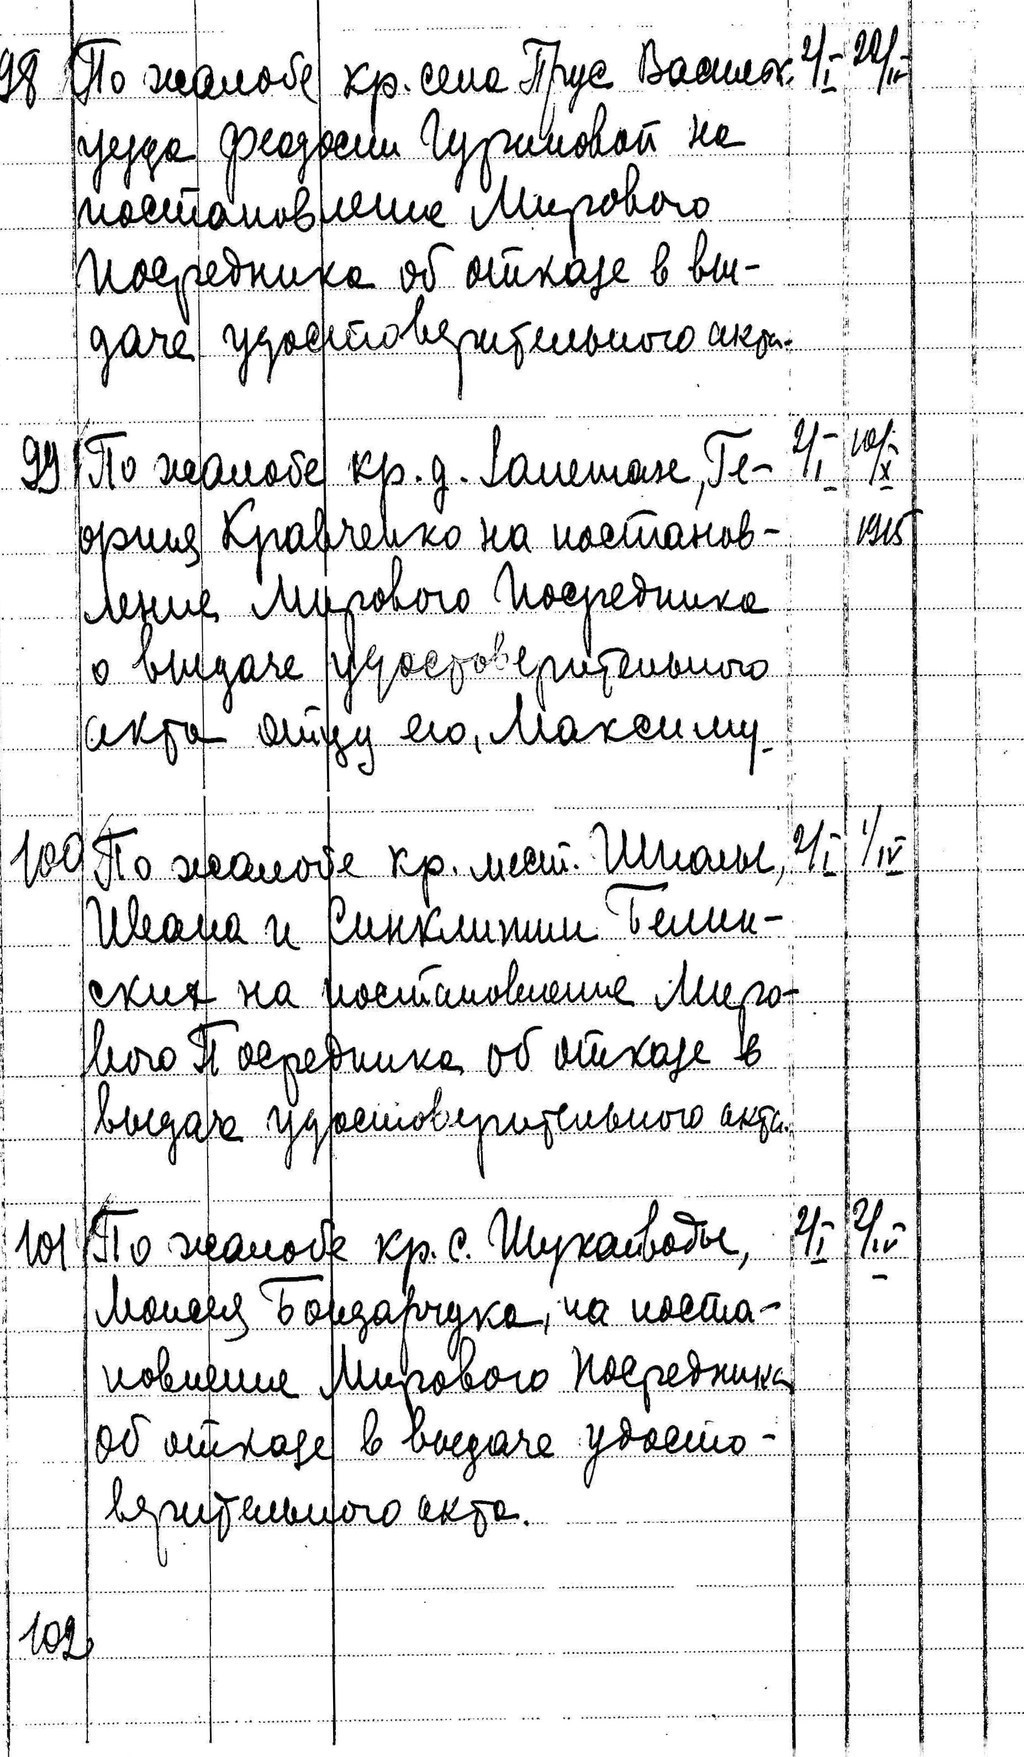 98 По жалобе кр. села Прус Васильк. 2/I 20/IV
уезда Феодосии Гуриновой на
постановление Мирового
Посредника об отказе в вы-
даче удостоверительного акта.
99 По жалобе кр. д. Залешан, Ге- 2/I 10/X
оргия Кравченко на постанов- 1915
ление Мирового Посредника
о выдаче удостоверительного
акта отцу его, Максиму.
100 По жалобе кр. мест. Шполы, 2/I 1/IV
Ивана и Синклитии Белин-
ских на постановление Миро-
вого Посредника об отказе в
выдаче удостоверительного акта.
101 По жалобе кр. с. Шукайводы, 2/I 2/IV
Моисея Бондарчука, на поста-
новление Мирового Посредника
об отказе в выдаче удосто-
верительного акта.
102